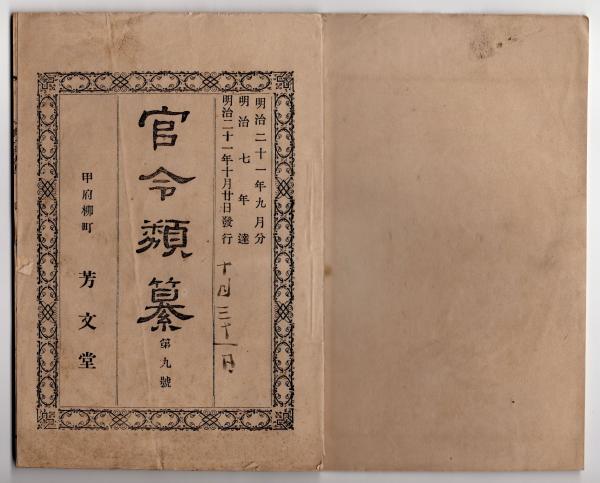 明治二十一年九月分
明治七年達
明治二十一年十月廿日發行
十月三十一日
官令類纂
第九號
甲府柳町 芳文堂